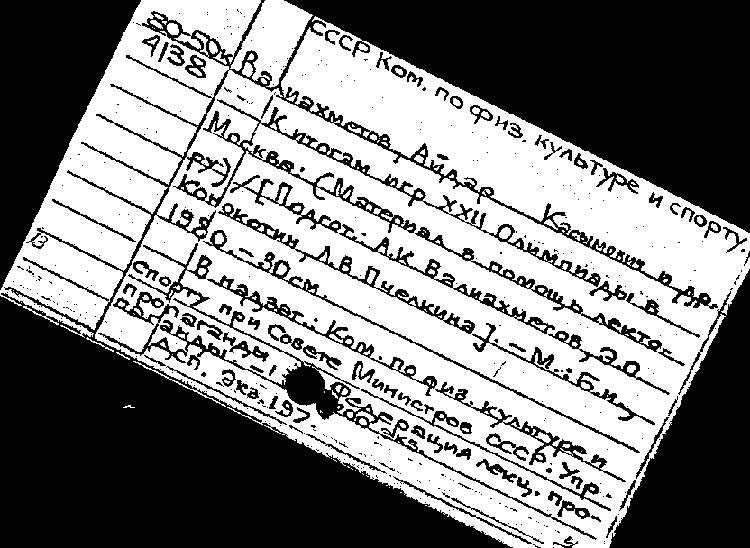 80-50к
4138
СССР. Ком. по физ. культуре и спорту.
Валиахметов, Айдар Касымович и др.
К итогам игр XXII Олимпиады в
Москве: (Материал в помощь лекто-
ру) / [Подгот.: А.К. Валиахметов, Э.О.
Конокотин, Л.В. Пчелкина]. – М.: Б.и.,
1980. – 30 см.
В надзаг.: Ком. по физ. культуре и
спорту при Совете Министров СССР. Упр.
пропаганды. Федерация лекц. про-
паганды. – 200 экз.
Дсп. Экз. 197.